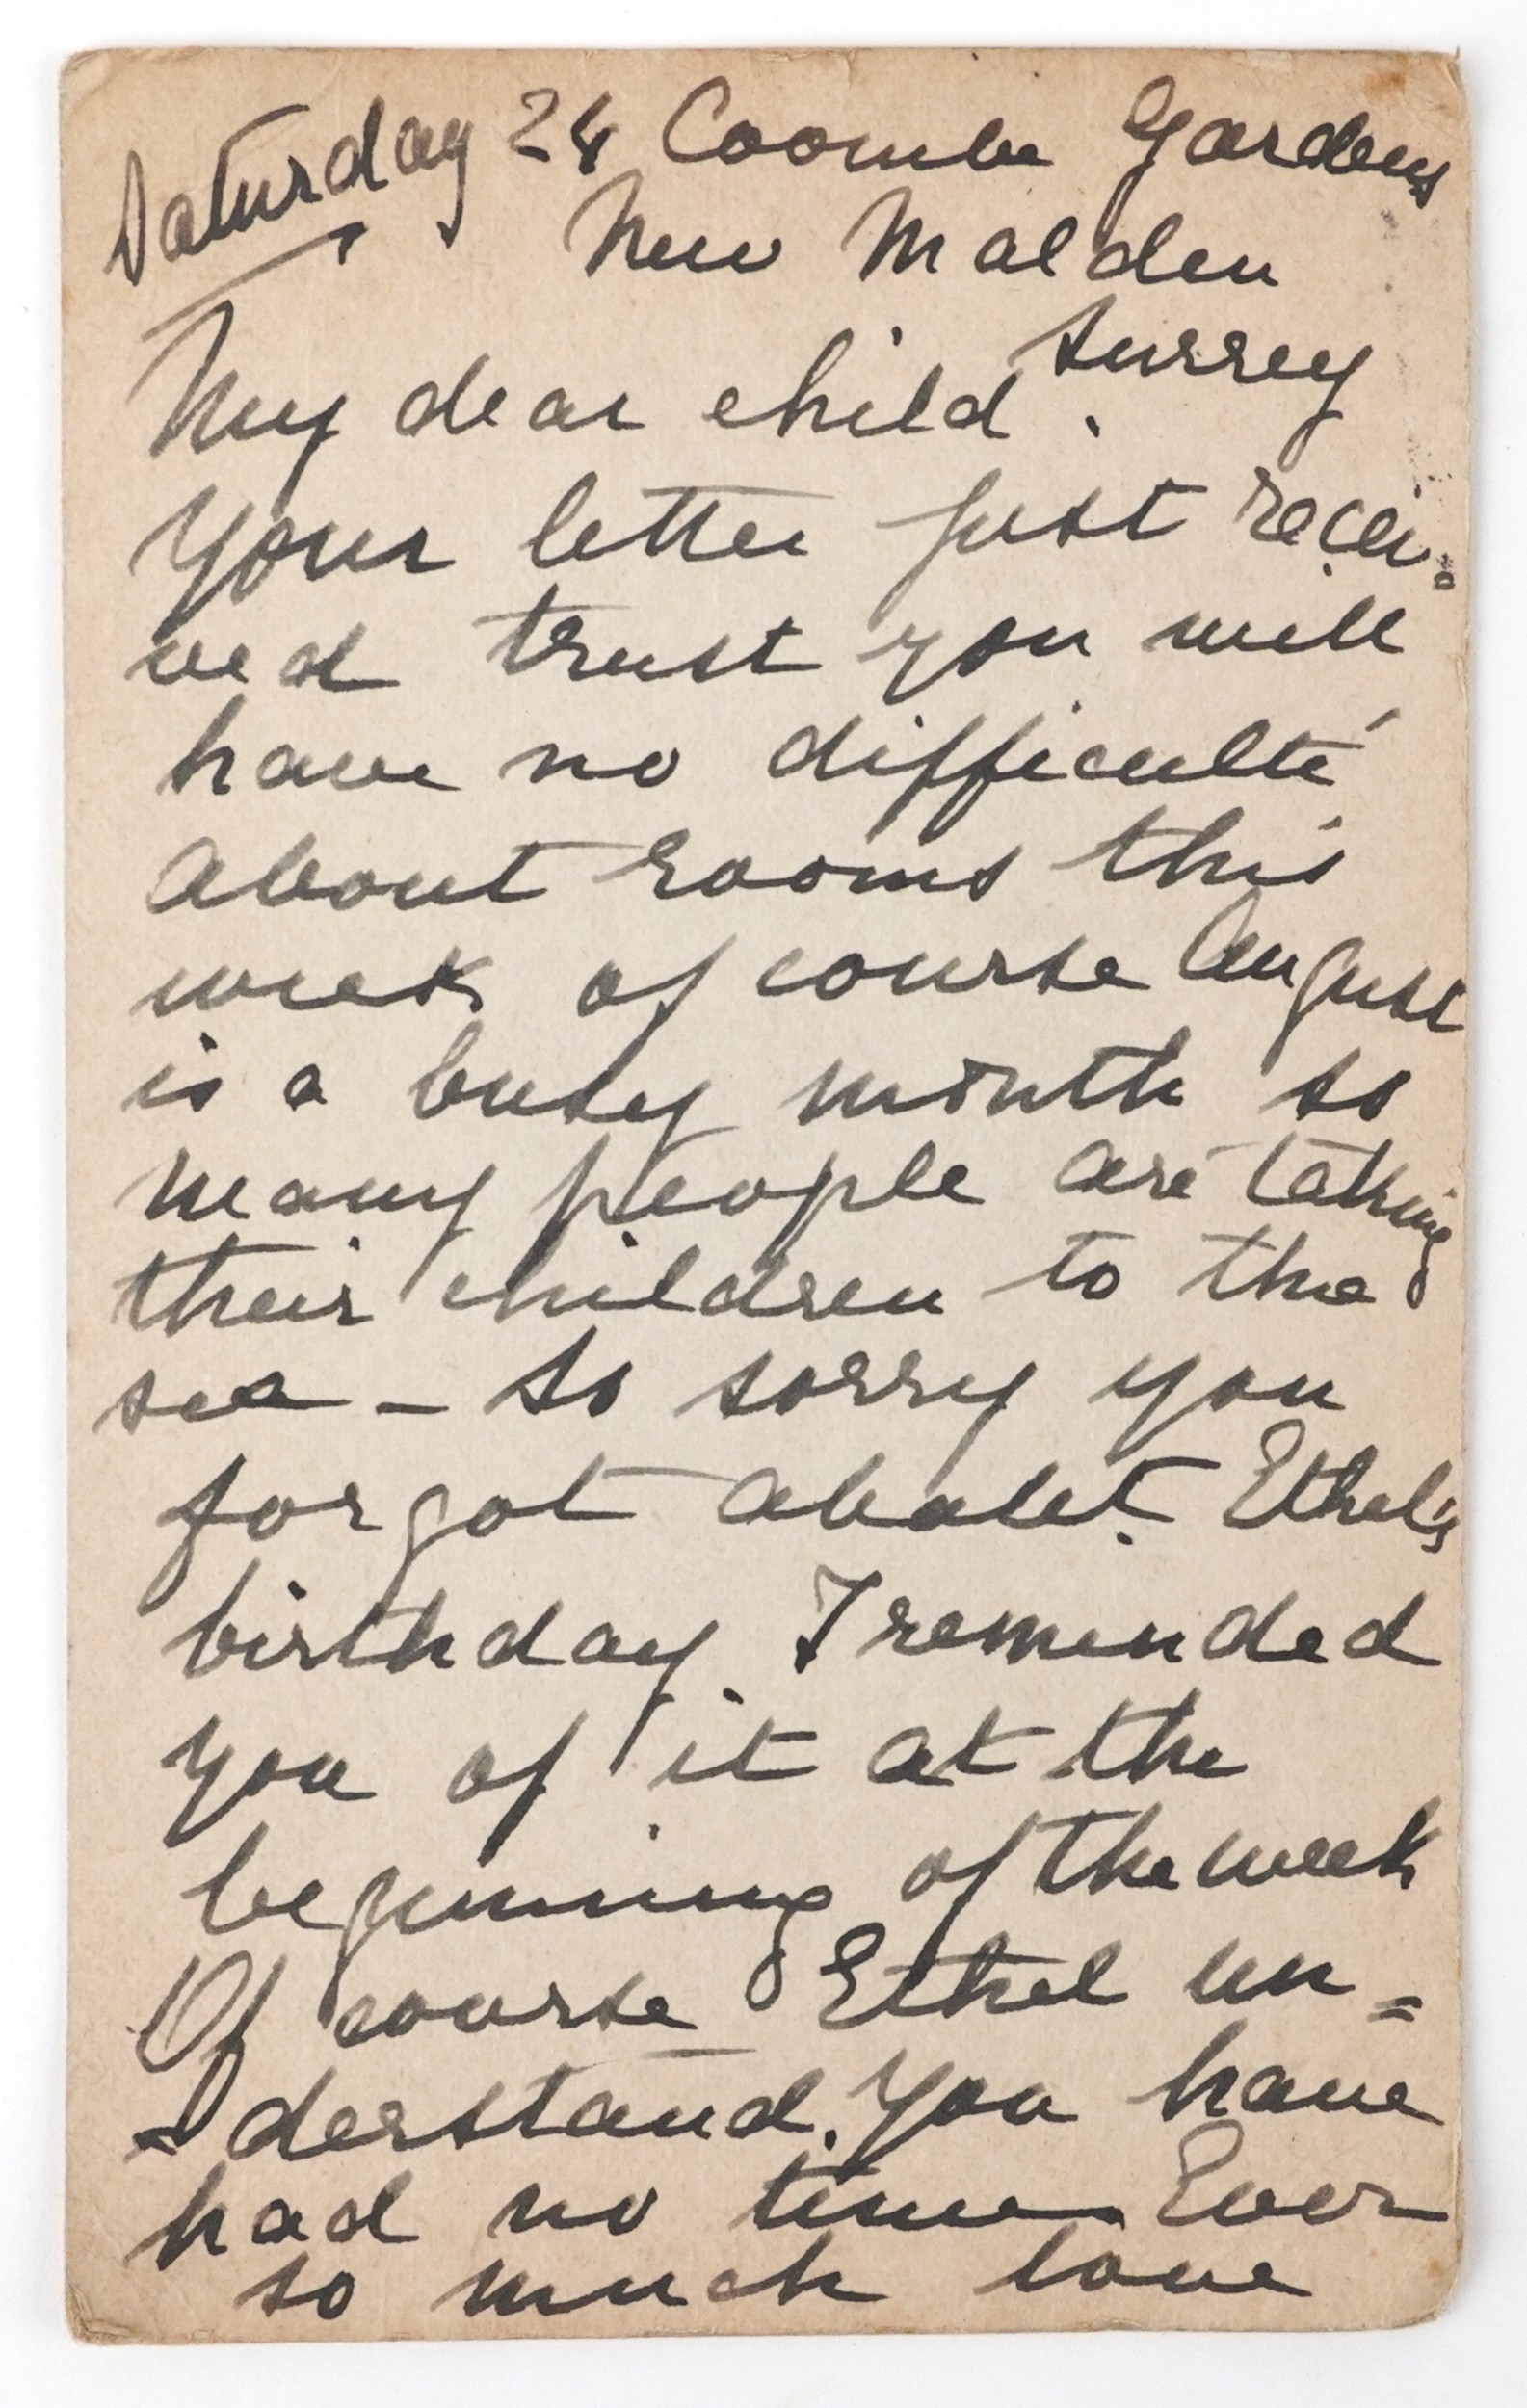 Saturday 24 Coombe Gardens
New Malden
Surrey
My dear child.
Your letter just recei-
ved trust you will
have no difficulté
about rooms this
week of course August
is a busy month so
many people are taking
their children to the
sea – so sorry you
forgot about Ethel's
birthday. I reminded
you of it at the
beginning of the week
Of course Ethel un=
-derstand. You have
had no time. Ever
so much love